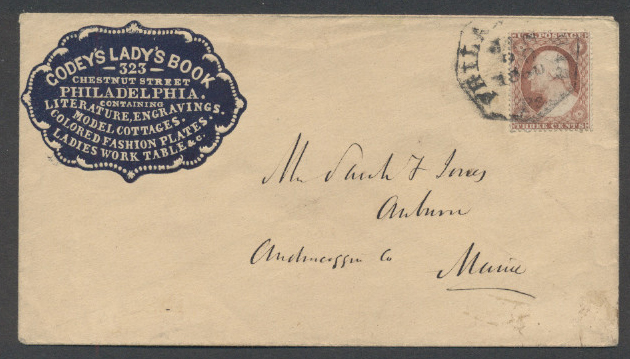 GODEY'S LADY'S BOOK
323
CHESTNUT STREET
PHILADELPHIA.
CONTAINING
LITERATURE, ENGRAVINGS.
MODEL COTTAGES.
COLORED FASHION PLATES.
LADIES WORK TABLE &c.
PHILA
U.S. POSTAGE
THREE CENTS
Jones
Auburn
Androscoggin Co
Maine